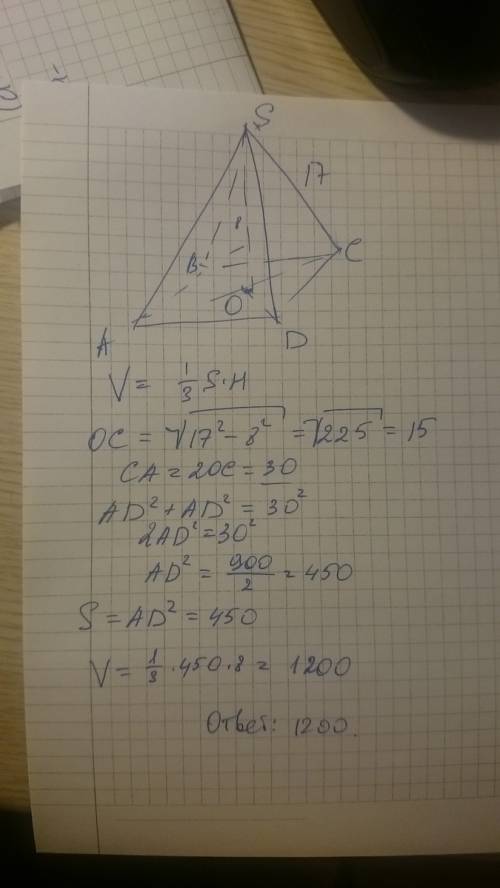 S
17
8
B
C
O
A
D
V = 1/3 S·H
OC = √(17² - 8²) = √225 = 15
CA = 2OC = 30
AD² + AD² = 30²
2AD² = 30²
AD² = 900/2 = 450
S = AD² = 450
V = 1/3 · 450 · 8 = 1200
Ответ: 1200.